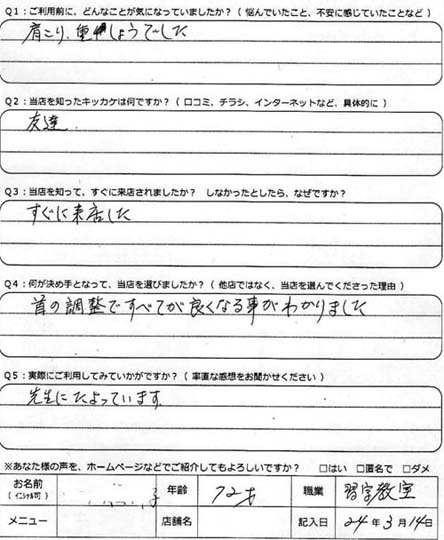 Q1：ご利用前に、どんなことが気になっていましたか？（悩んでいたこと、不安に感じていたことなど）
肩こり、重しょうでした
Q2：当店を知ったキッカケは何ですか？（口コミ、チラシ、インターネットなど、具体的に）
友達
Q3：当店を知って、すぐに来店されましたか？ しなかったとしたら、なぜですか？
すぐに来店した
Q4：何が決め手となって、当店を選びましたか？（他店ではなく、当店を選んでくださった理由）
首の調整ですべてが良くなる事がわかりました
Q5：実際にご利用してみていかがですか？（率直な感想をお聞かせください）
先生にたよっています
※あなた様の声を、ホームページなどでご紹介してもよろしいですか？ □はい □匿名で □ダメ
お名前（イニシャル可） 子 年齢 72才 職業 習字教室
メニュー 店舗名 記入日 24年3月14日